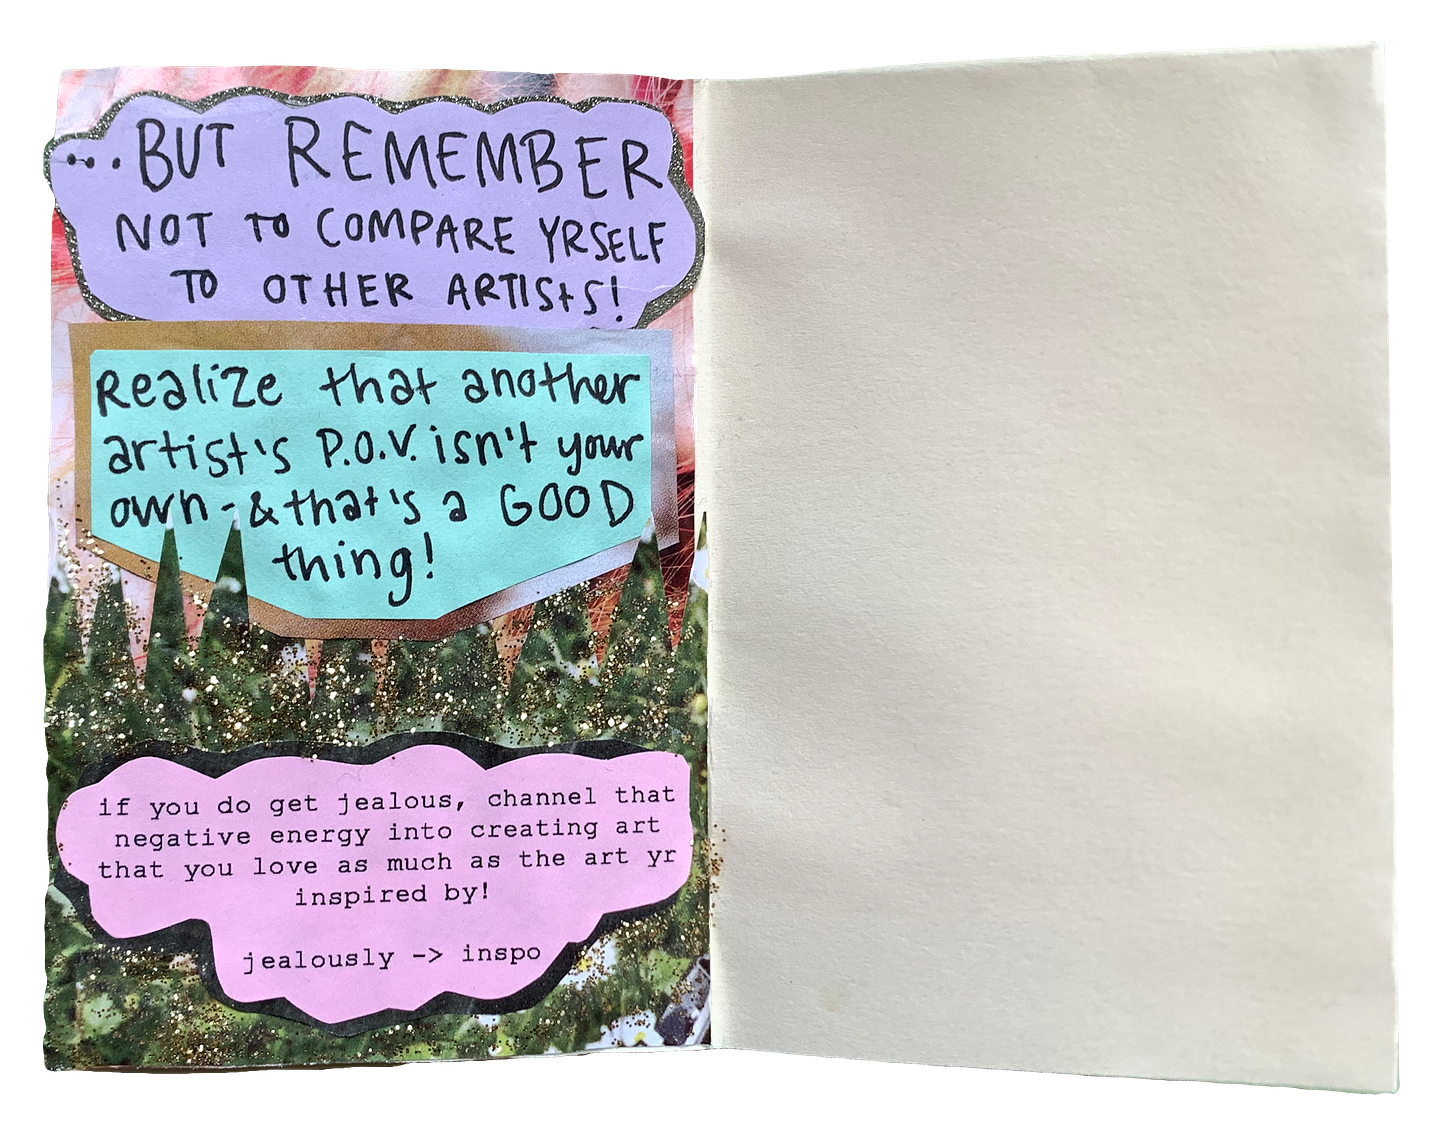 ...BUT REMEMBER
NOT TO COMPARE YRSELF
TO OTHER ARTISTS!
Realize that another
artist's P.O.V. isn't your
own-&that's a GOOD
thing!
if you do get jealous, channel that
negative energy into creating art
that you love as much as the art yr
inspired by!
jealously -> inspo